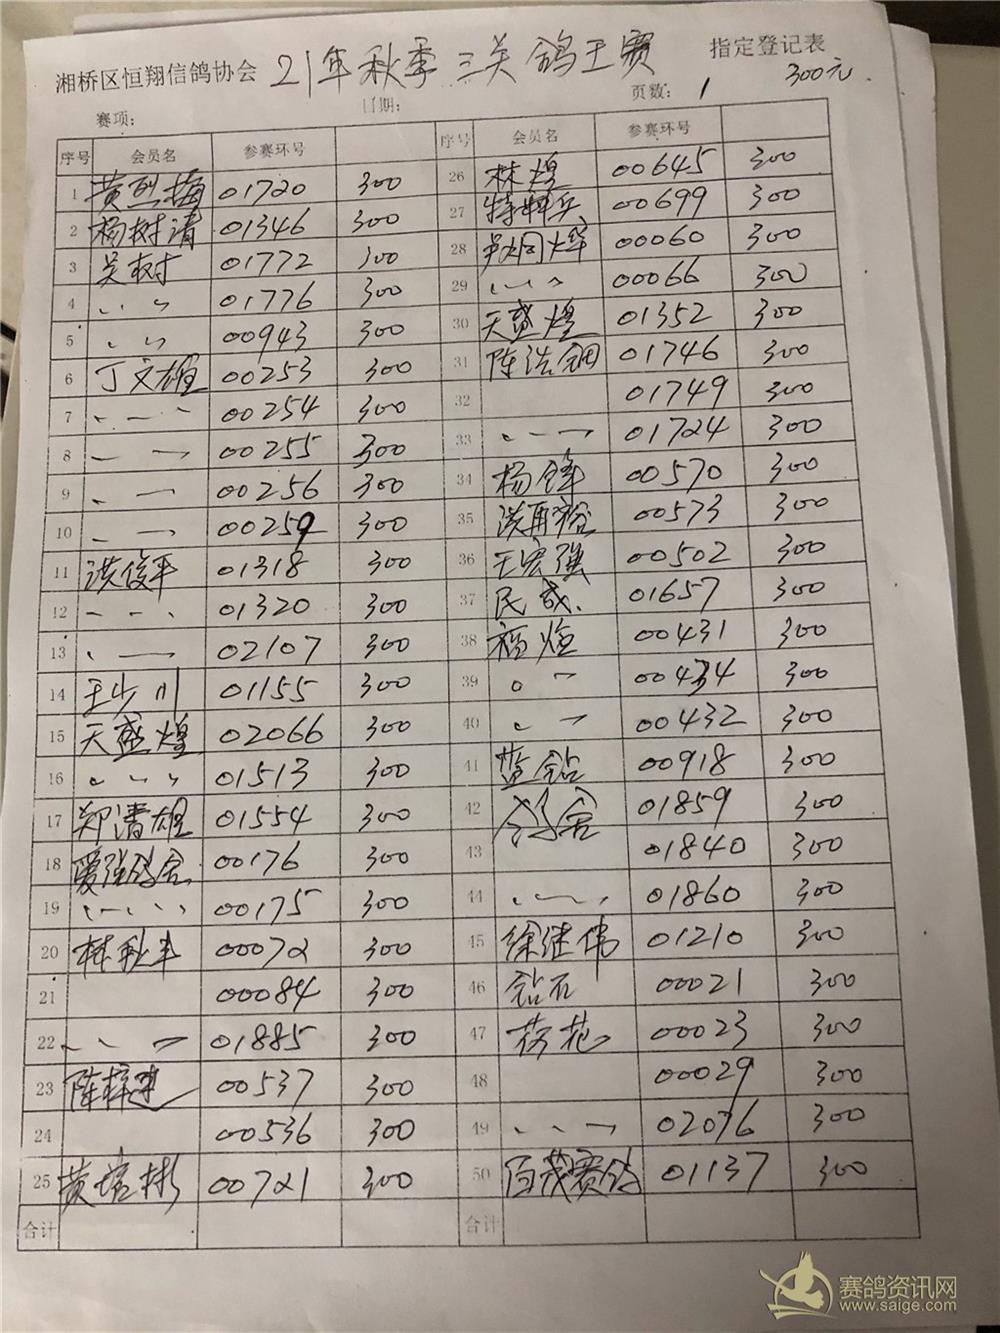 湘桥区恒翔信鸽协会 21年秋季三关鸽王赛 指定登记表
300元
赛项: 日期: 页数: 1
序号 会员名 参赛环号 序号 会员名 参赛环号
1 黄烈梅 01720 300 26 林煌 00645 300
2 杨树清 01346 300 27 特种兵 00699 300
3 吴树 01772 300 28 吴炯烨 00060 300
4 〃 〃 01776 300 29 〃 〃 00066 300
5 〃 〃 00943 300 30 天盛煌 01352 300
6 丁文雄 00253 300 31 陈浩钿 01746 300
7 〃 — 〃 00254 300 32 01749 300
8 〃 — 00255 300 33 〃 — 〃 01724 300
9 〃 — 00256 300 34 杨锋 00570 300
10 〃 — 00259 300 35 洪再裕 00573 300
11 洪俊平 01318 300 36 王宏强 00502 300
12 〃 — 〃 01320 300 37 民盛 01657 300
13 〃 — 02107 300 38 杨焰 00431 300
14 王少川 01155 300 39 〃 〃 00434 300
15 天盛煌 02066 300 40 〃 〃 00432 300
16 〃 〃 〃 01513 300 41 蓝钻 00918 300
17 郑清雄 01554 300 42 舍 01859 300
18 爱强鸽舍 00176 300 43 01840 300
19 〃 〃 〃 00175 300 44 〃 — 〃 01860 300
20 林秋丰 00072 300 45 徐继伟 01210 300
21 00084 300 46 钻石 00021 300
22 〃 〃 — 01885 300 47 荷花 00023 300
23 陈梓建 00537 300 48 00029 300
24 00536 300 49 〃 〃 — 02076 300
25 黄培彬 00721 300 50 百茂赛鸽 01137 300
合计 合计
赛鸽资讯网
www.saige.com